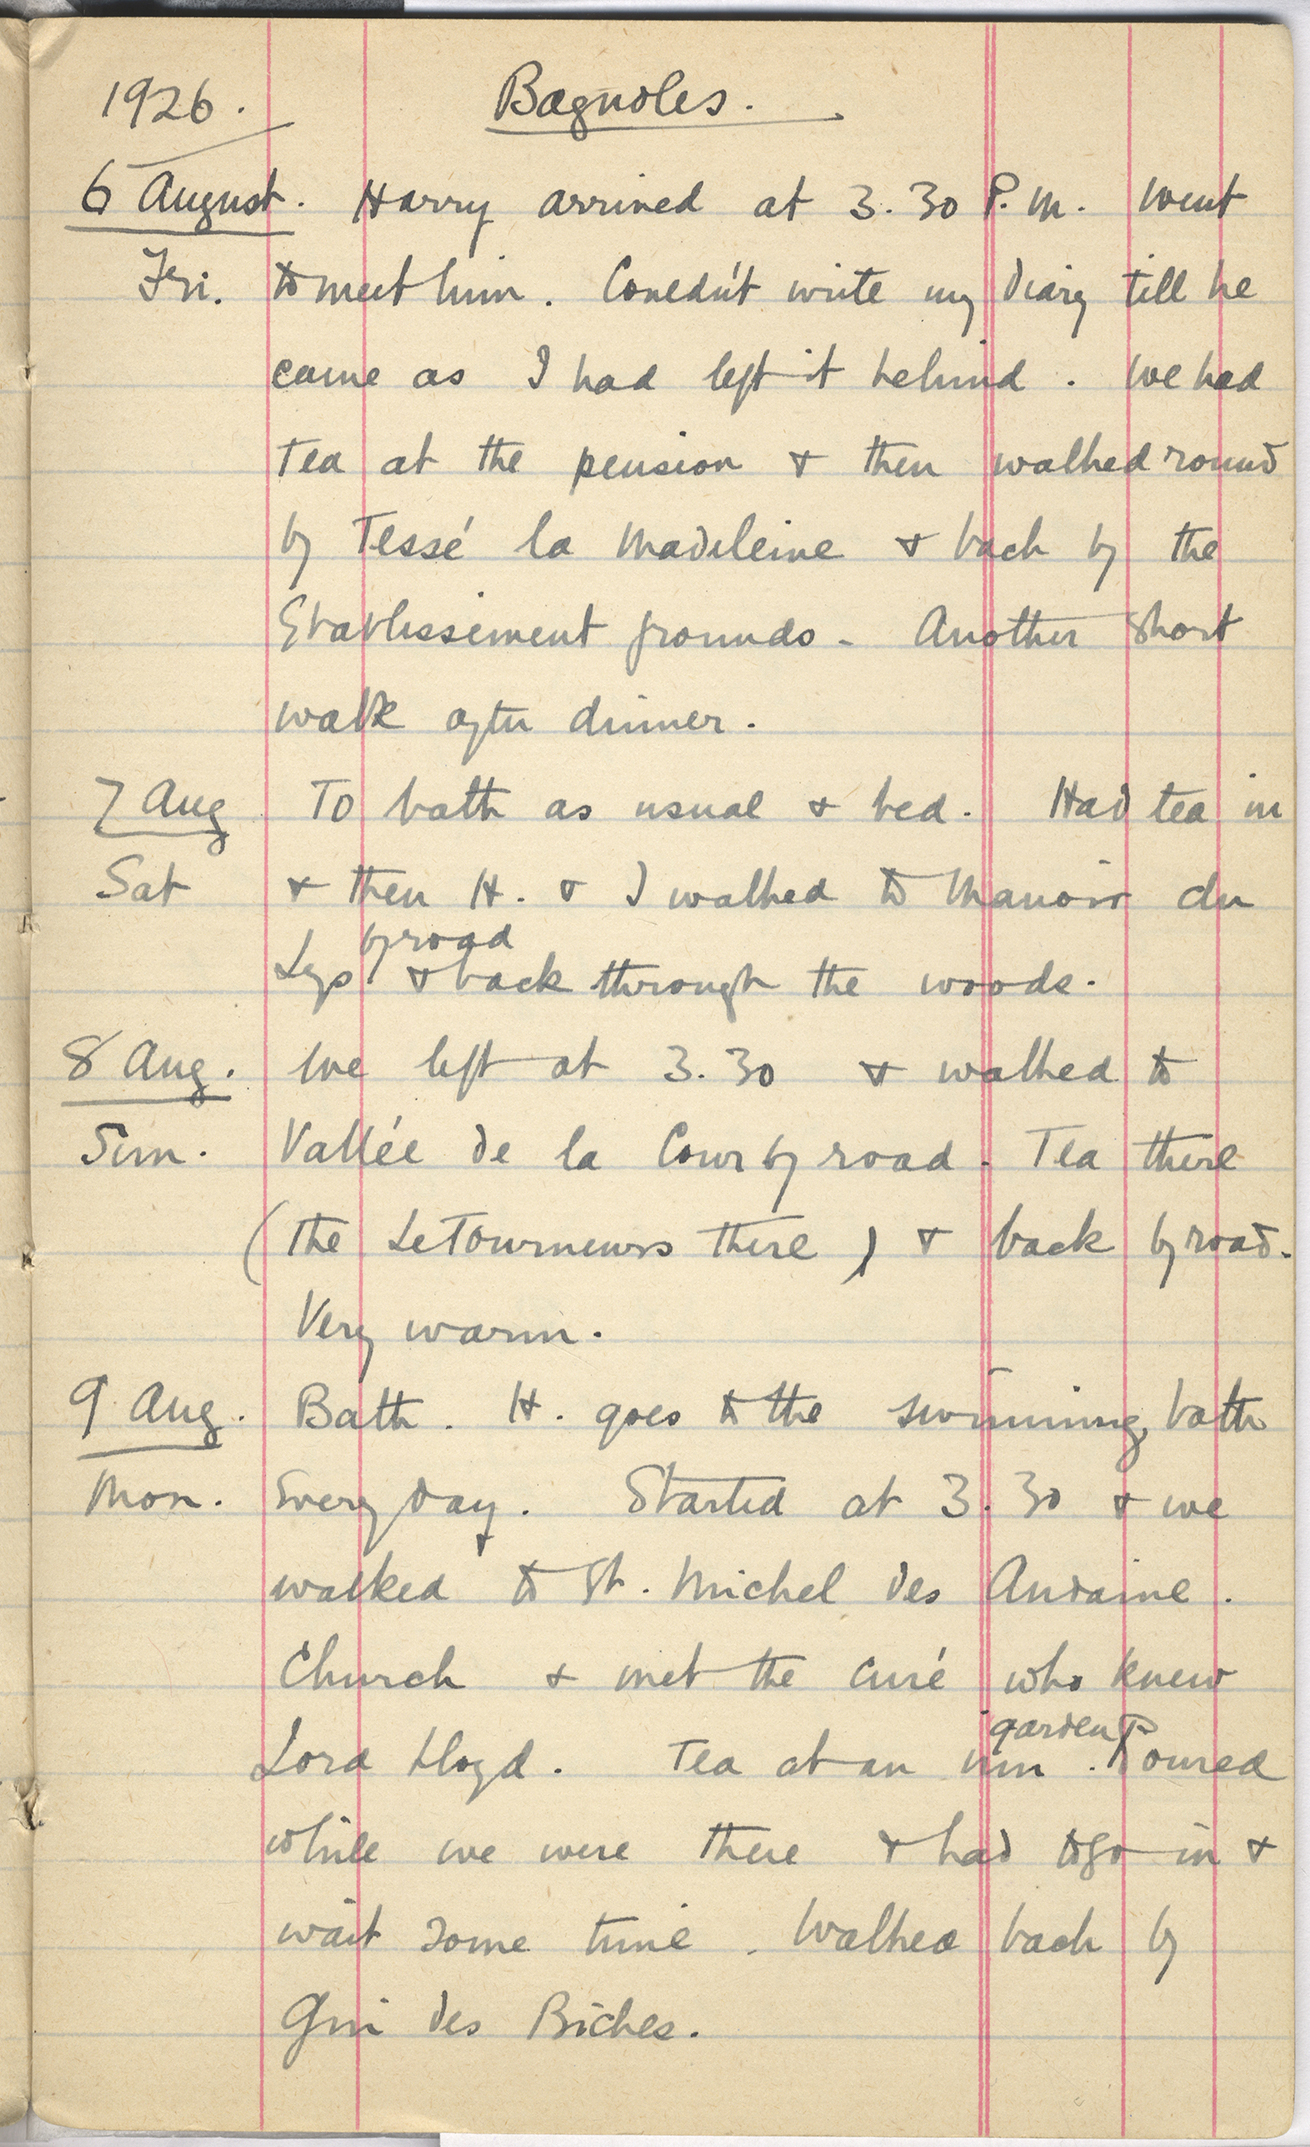 1926. Bagnoles.
6 August. Harry arrived at 3.30 P.m. Went
Fri. to meet him. Couldn't write my diary till he
came as I had left it behind. We had
Tea at the pension & then walked round
by Tessé la Madeleine & back by the
Etablissement grounds - Another short
walk after dinner.
7 Aug To bath as usual & bed. Had tea in
Sat & then H. & I walked to Manoir du
by road
Lys & back through the woods.
8 Aug. We left at 3.30 & walked to
Sun. Vallée de la Cour by road. Tea there
(the LeTourneurs there) & back by road.
Very warm.
9 Aug. Bath. H. goes to the swimming bath
Mon. Every day. Started at 3.30 & we
walked to St. Michel des Andaine.
Church & met the curé who knew
garden
Lord Lloyd. Tea at an inn. Poured
while we were there & had to go in &
wait some time. Walked back by
des Biches.